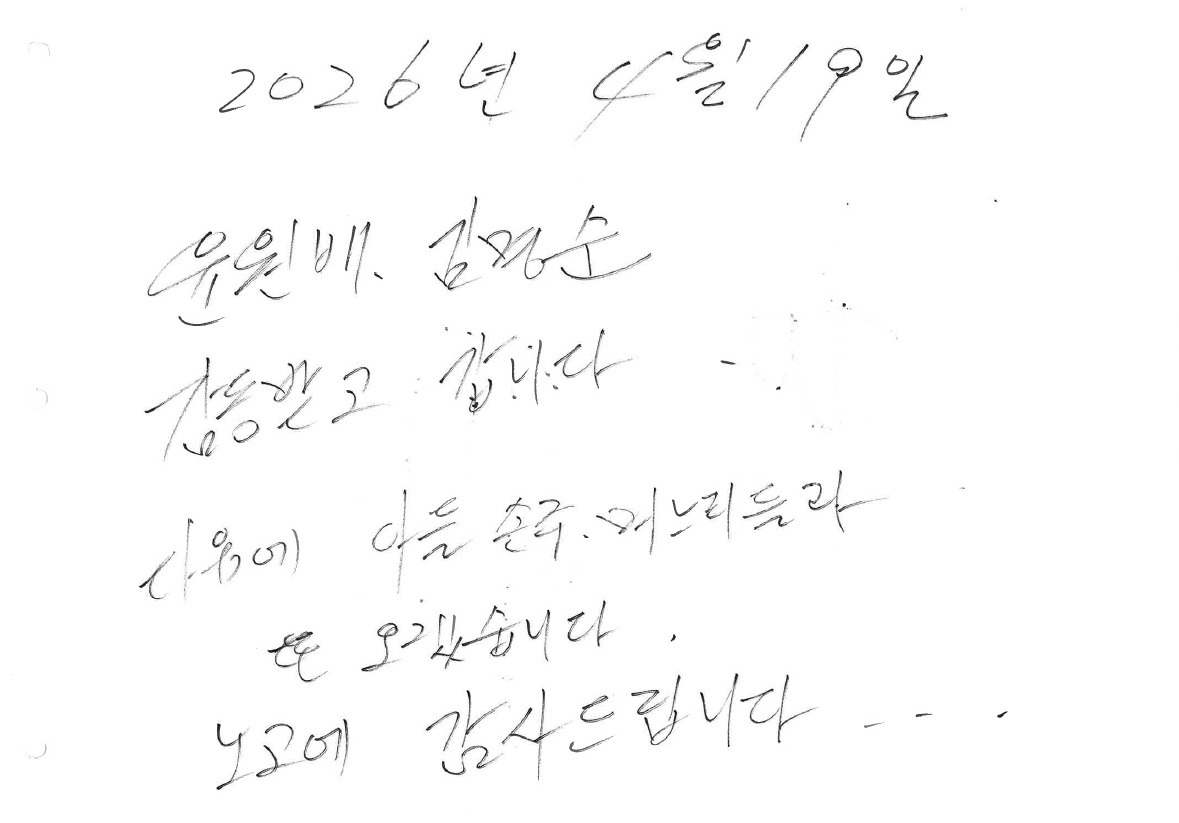 2026년 4월 19일
윤원배. 김경순
감동받고 갑니다
다음에 아들 손주. 며느리들과
또 오겠습니다.
노고에 감사드립니다 - - -